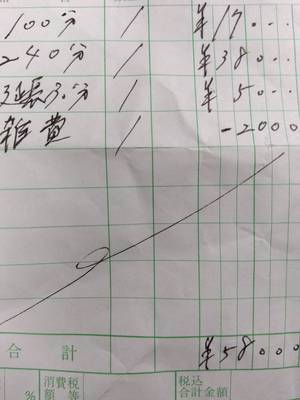 100分 1 ¥17000
240分 1 ¥38000
延長30分 1 ¥5000
雑費 1 -2000
合計 ¥58000
% 消費税額等 税込合計金額